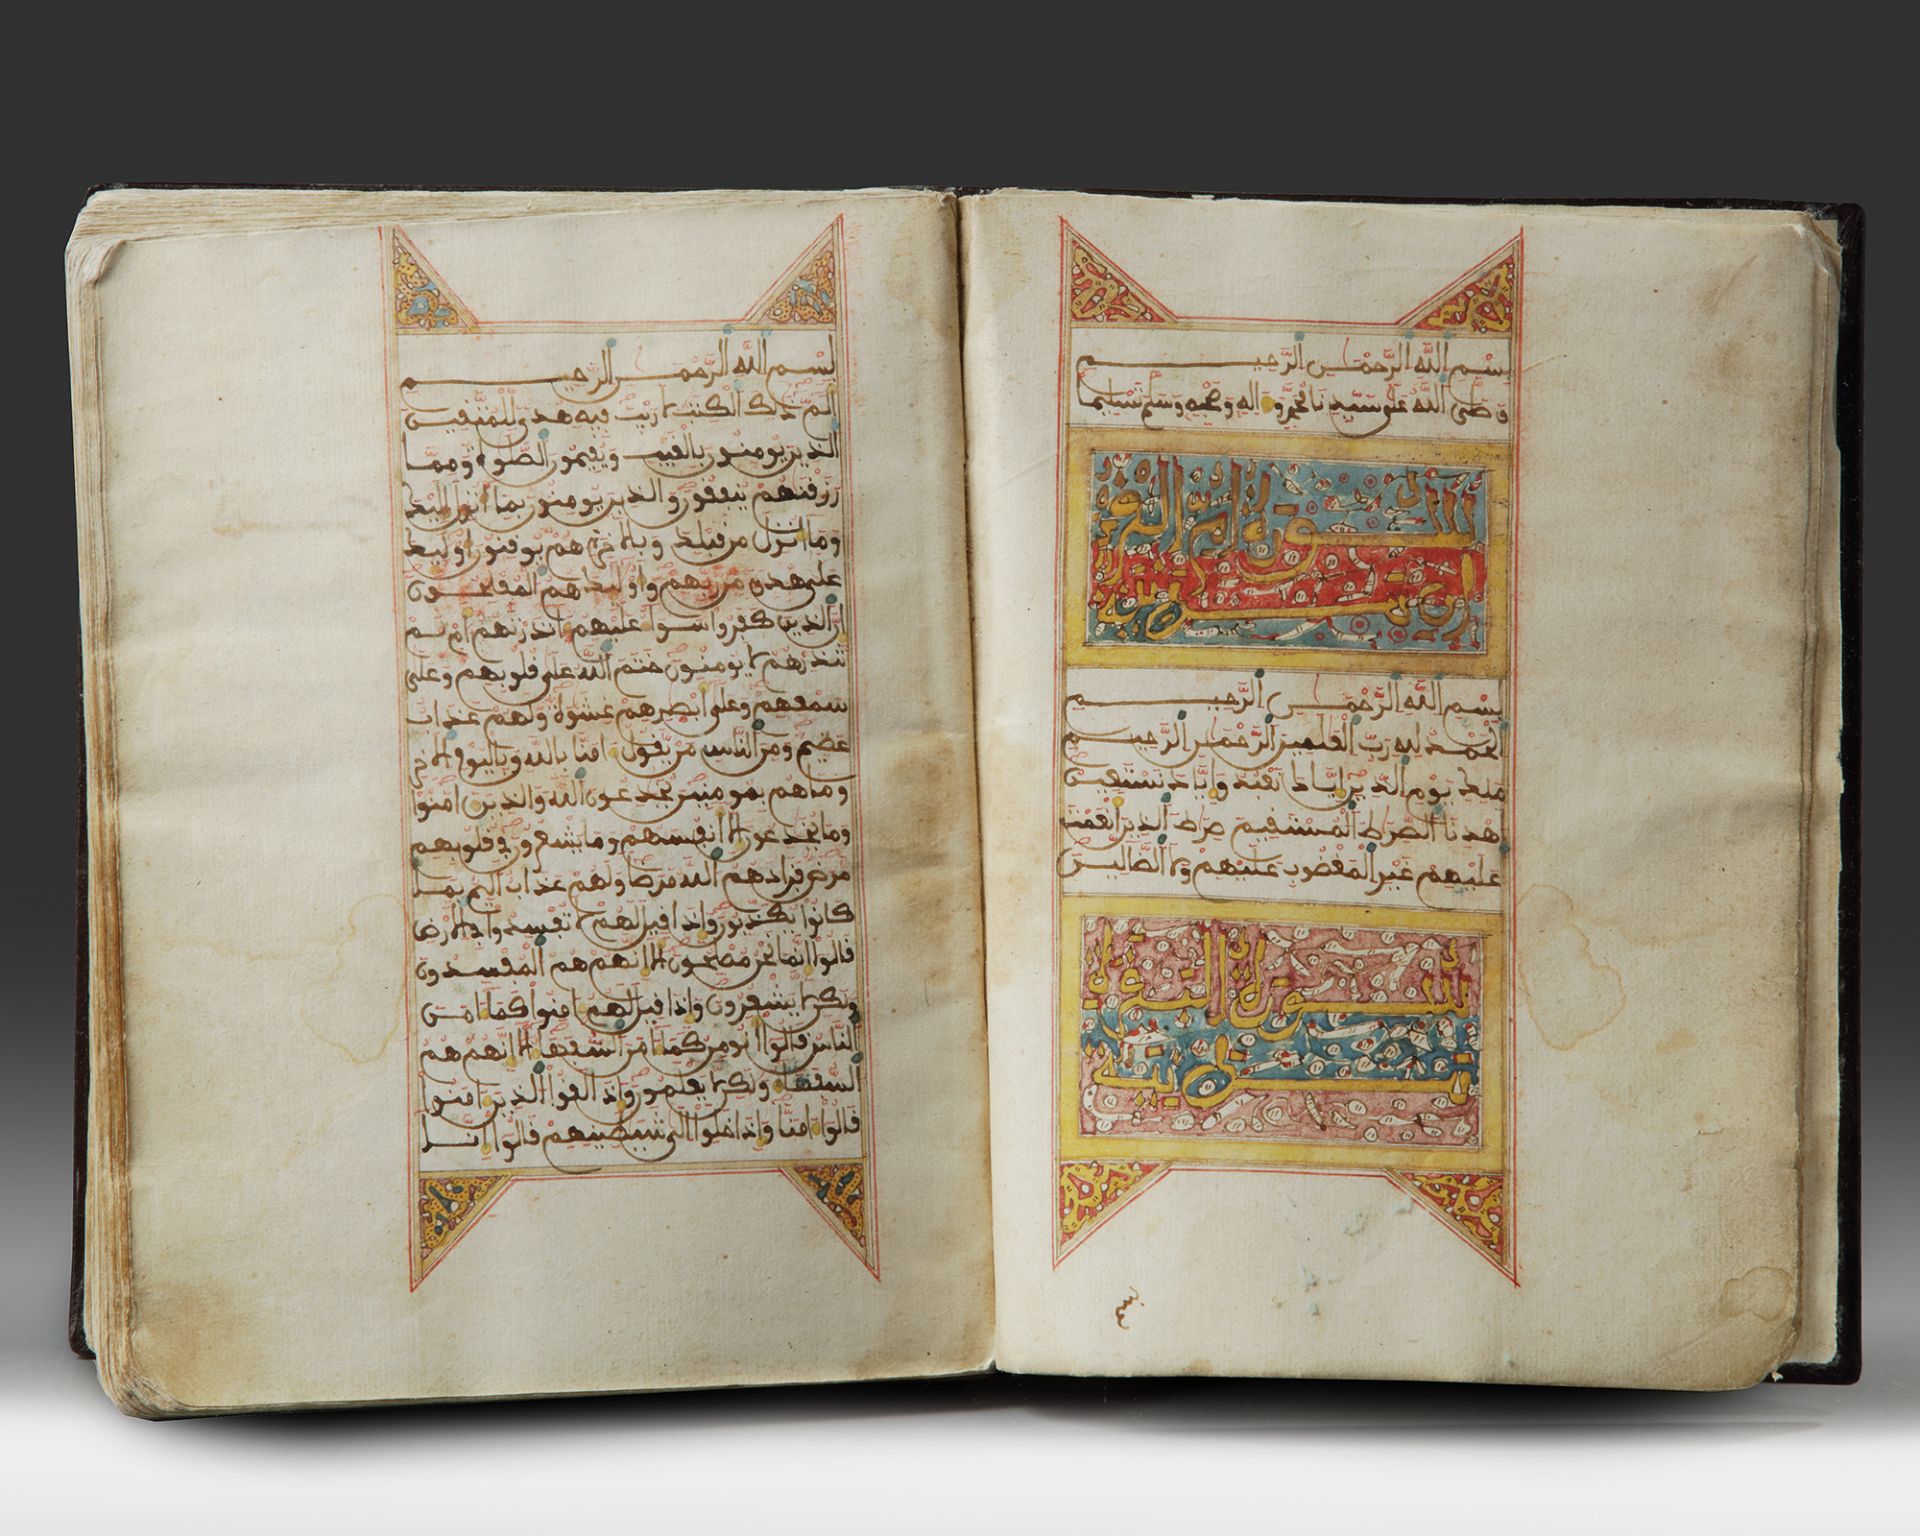 بسم الله الرحمن الرحيم
وصلى الله على سيدنا محمد واله وصحبه وسلم تسليما
سورة ام القر
ان
بسم الله الرحمن الرحيم
الحمد لله رب العلمين الرحمن الرحيم
ملك يوم الدين اياك نعبد واياك نستعين
اهدنا الصراط المستقيم صراط الذين انعمت
عليهم غير المغضوب عليهم ولا الضالين
سورة البقرة
مدنية
بسم
بسم الله الرحمن الرحيم
الم ذلك الكتب لا ريب فيه هدى للمتقين
الذين يومنون بالغيب ويقيمون الصلوة ومما
رزقنهم ينفقون والذين يومنون بما انزل اليك
وما انزل من قبلك وبالاخرة هم يوقنون اوليك
على هدى من ربهم واوليك هم المفلحون
ان الذين كفروا سوا عليهم انذرتهم ام لم
تنذرهم لا يومنون ختم الله على قلوبهم وعلى
سمعهم وعلى ابصرهم غشوة ولهم عذاب
عظيم ومن الناس من يقول امنا بالله وباليوم الاخر
وما هم بمومنين يخدعون الله والذين امنوا
وما يخدعون الا انفسهم وما يشعرون في قلوبهم
مرض فزادهم الله مرضا ولهم عذاب اليم بما
كانوا يكذبون واذا قيل لهم لا تفسدوا في الارض
قالوا انما نحن مصلحون الا انهم هم المفسدون
ولكن لا يشعرون واذا قيل لهم امنوا كما امن
الناس قالوا انومن كما امن السفها الا انهم هم
السفها ولكن لا يعلمون واذا لقوا الذين امنوا
قالوا امنا واذا خلوا الى شيطينهم قالوا انا